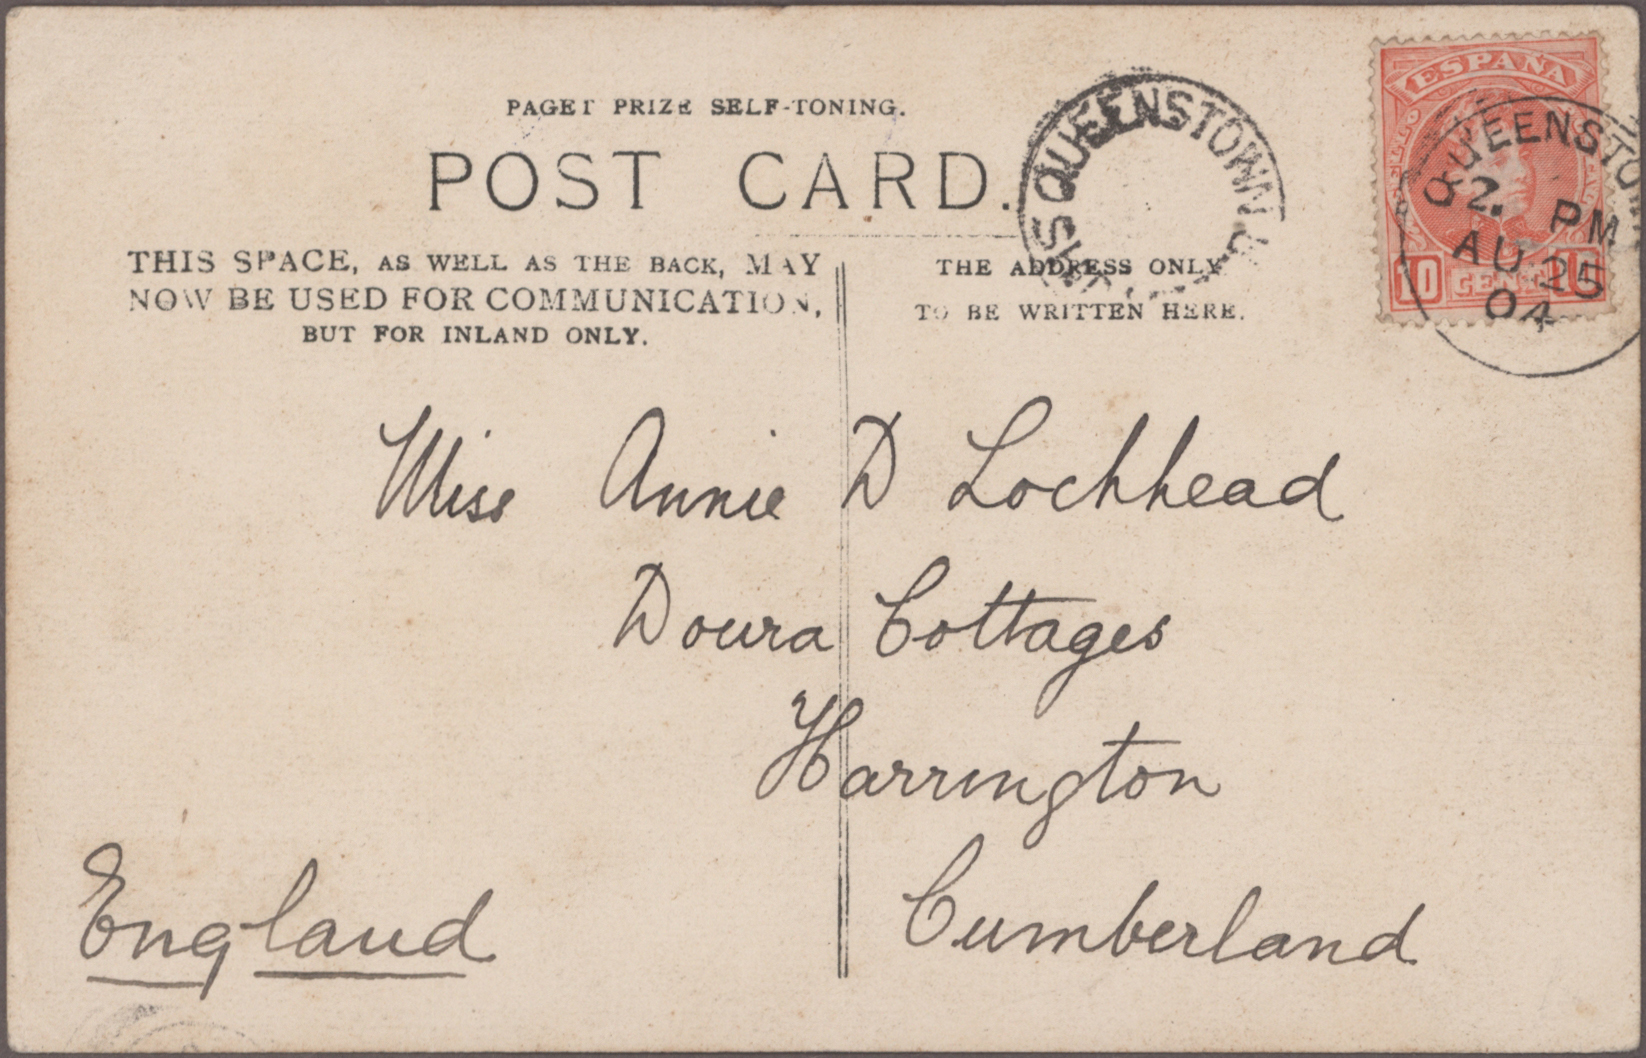 PAGET PRIZE SELF-TONING.
POST CARD.
THIS SPACE, AS WELL AS THE BACK, MAY
NOW BE USED FOR COMMUNICATION,
BUT FOR INLAND ONLY.
THE ADDRESS ONLY
TO BE WRITTEN HERE.
QUEENSTOWN
ESPAÑA
10 CENT
QUEENSTOWN
2. PM
AU 25
04
Miss Annie D Lochhead
Doura Cottages
Harrington
Cumberland
England